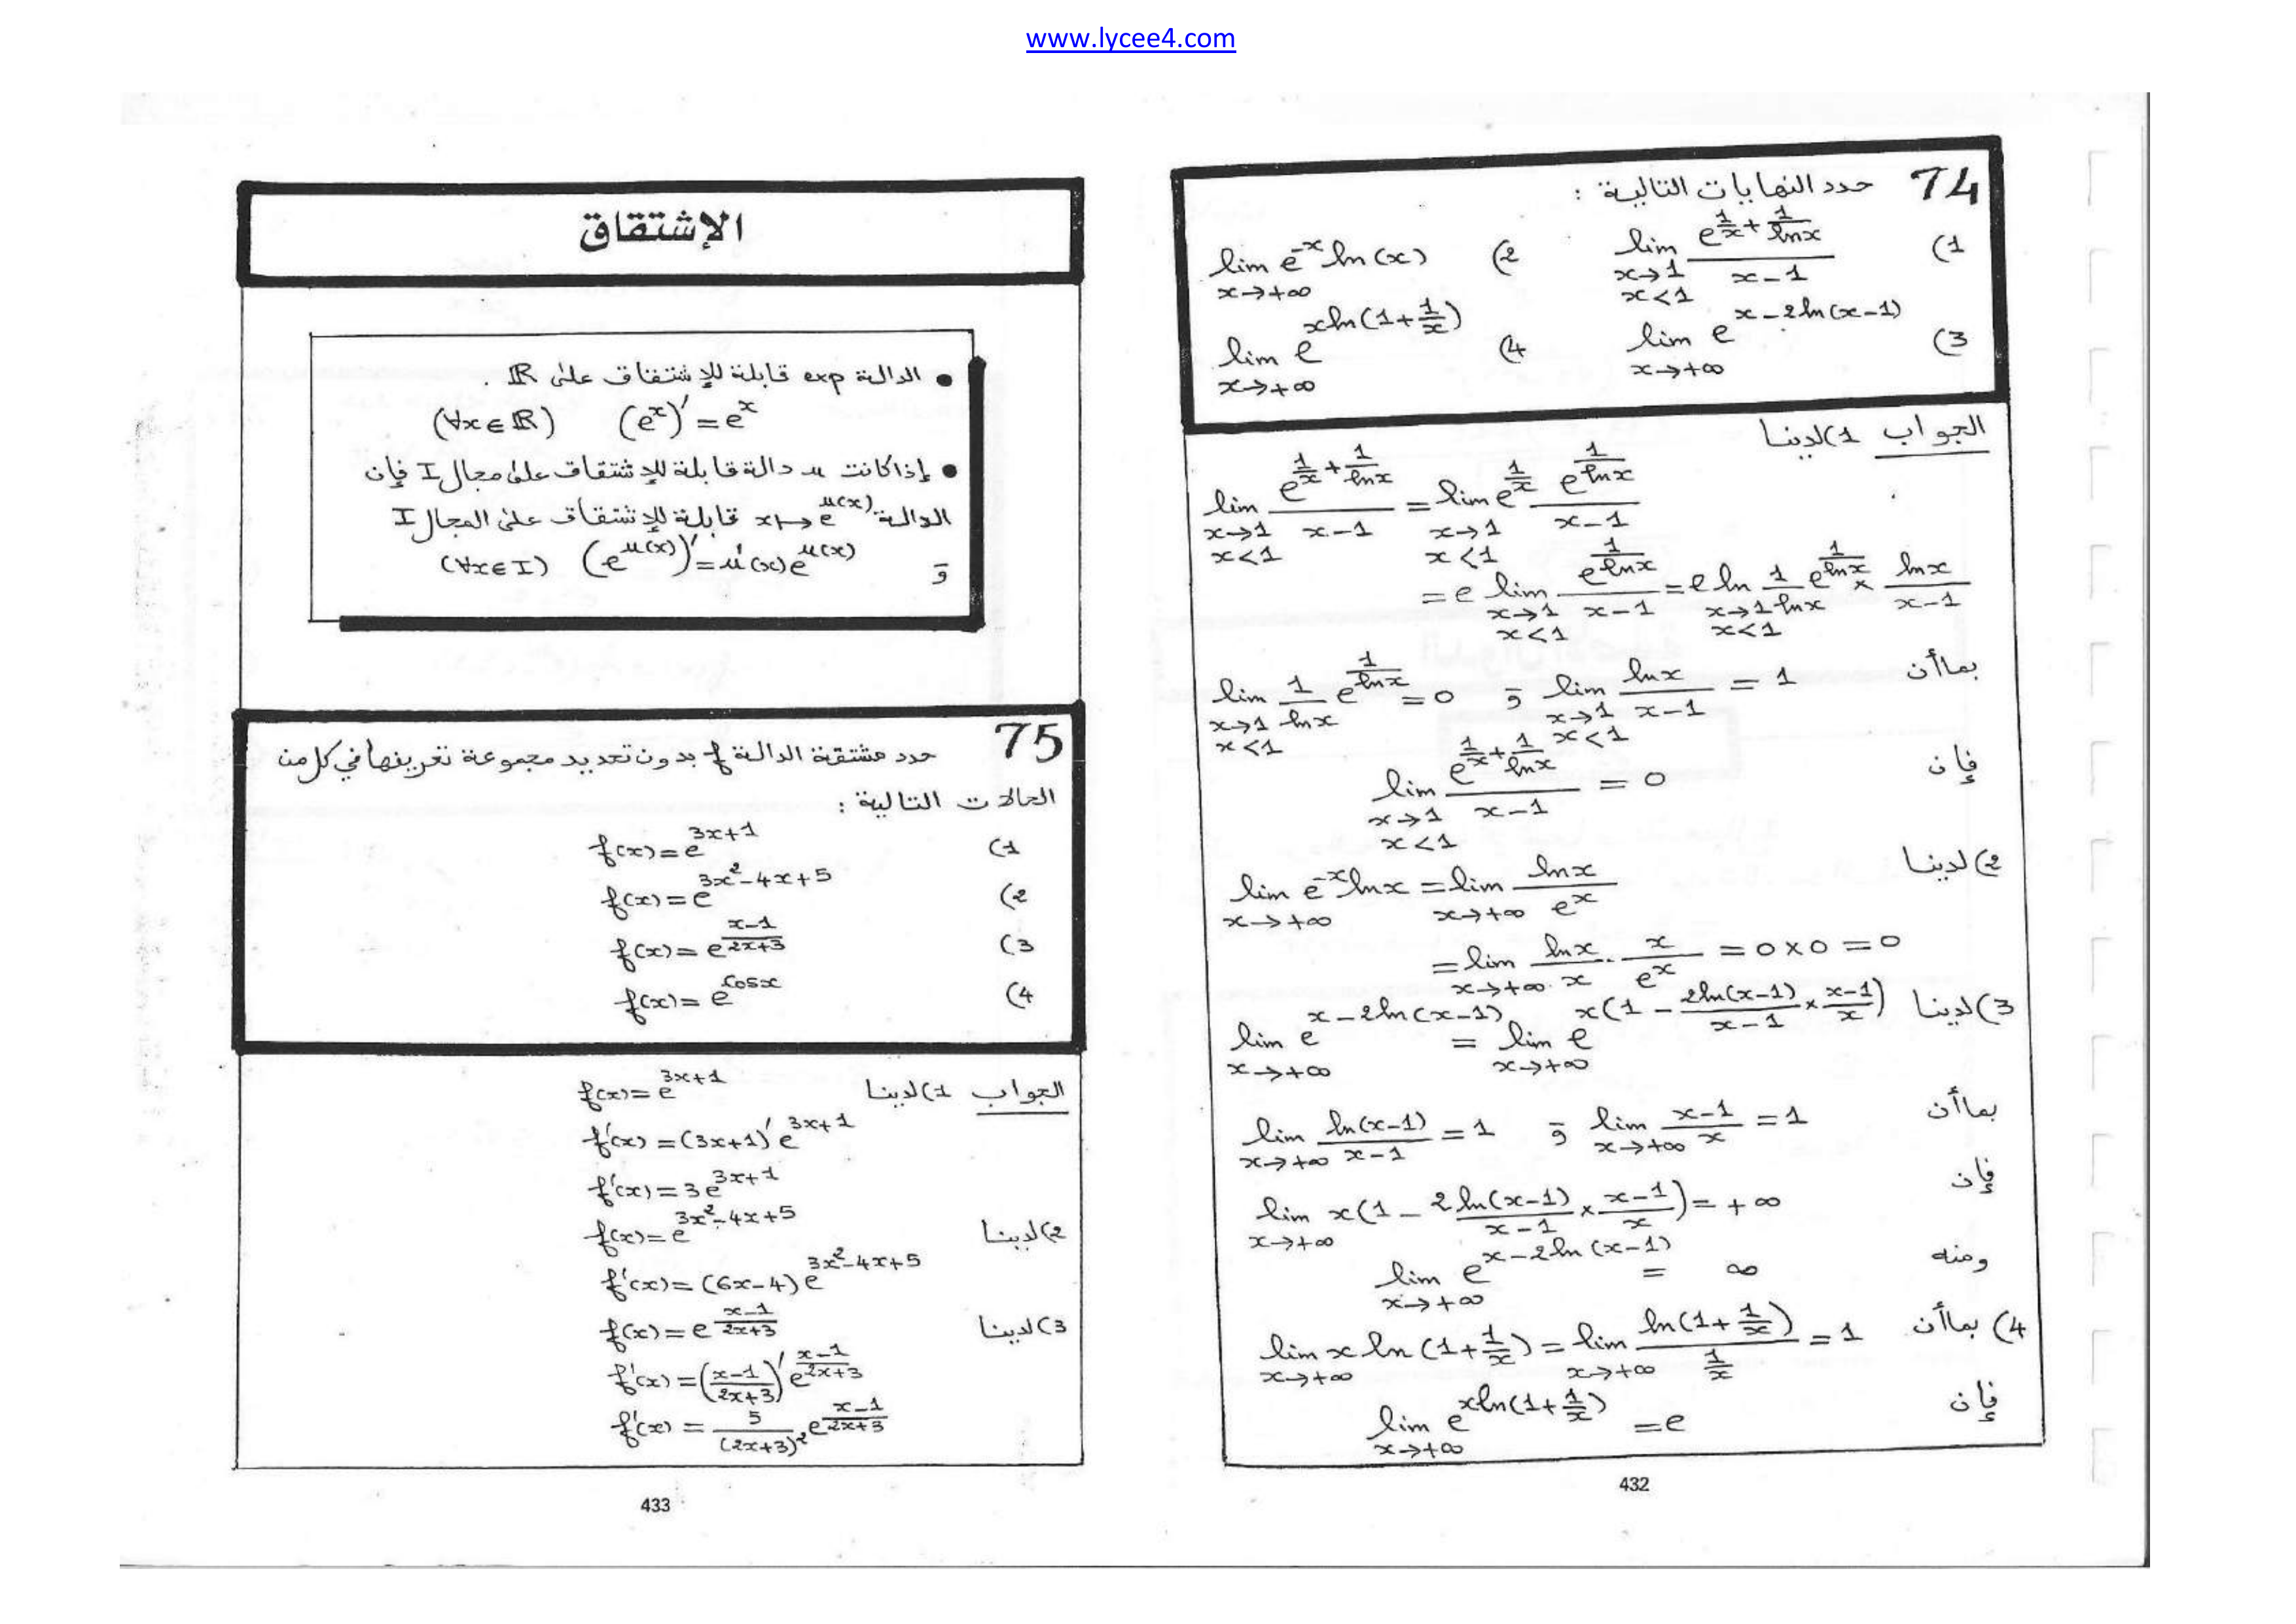 www.lycee4.com
74 حدد النهايات التالية :
1) lim_{x→1, x<1} e^{1/x + 1/lnx} / (x-1)    2) lim_{x→+∞} e^{-x} ln(x)
3) lim_{x→+∞} e^{x-2ln(x-1)}    4) lim_{x→+∞} e^{xln(1+1/x)}
الجواب 1) لدينا
lim_{x→1, x<1} e^{1/x + 1/lnx} / (x-1) = lim_{x→1, x<1} e^{1/x} e^{1/lnx} / (x-1)
= e lim_{x→1, x<1} e^{1/lnx} / (x-1) = e ln_{x→1, x<1} (1/lnx) e^{1/lnx} × lnx/(x-1)
بما أن lim_{x→1, x<1} (1/lnx) e^{1/lnx} = 0 و lim_{x→1, x<1} lnx/(x-1) = 1
فإن lim_{x→1, x<1} e^{1/x + 1/lnx} / (x-1) = 0
2) لدينا lim_{x→+∞} e^{-x} lnx = lim_{x→+∞} lnx/e^x
= lim_{x→+∞} lnx/x . x/e^x = 0×0 = 0
3) لدينا lim_{x→+∞} e^{x-2ln(x-1)} = lim_{x→+∞} e^{x(1 - 2ln(x-1)/(x-1) × (x-1)/x)}
بما أن lim_{x→+∞} ln(x-1)/(x-1) = 1 و lim_{x→+∞} (x-1)/x = 1
فإن lim_{x→+∞} x(1 - 2ln(x-1)/(x-1) × (x-1)/x) = +∞
ومنه lim_{x→+∞} e^{x-2ln(x-1)} = ∞
4) بما أن lim_{x→+∞} x ln(1+1/x) = lim_{x→+∞} ln(1+1/x) / (1/x) = 1
فإن lim_{x→+∞} e^{xln(1+1/x)} = e
432
الإشتقاق
• الدالة exp قابلة للإشتقاق على ℝ .
(∀x∈ℝ) (e^x)' = e^x
• إذا كانت u دالة قابلة للإشتقاق على مجال I فإن
الدالة x↦e^{u(x)} قابلة للإشتقاق على المجال I
و (∀x∈I) (e^{u(x)})' = u'(x)e^{u(x)}
75 حدد مشتقة الدالة f بدون تحديد مجموعة تعريفها في كل من
الحالات التالية :
1) f(x) = e^{3x+1}
2) f(x) = e^{3x²-4x+5}
3) f(x) = e^{(x-1)/(2x+3)}
4) f(x) = e^{cosx}
الجواب 1) لدينا f(x) = e^{3x+1}
f'(x) = (3x+1)' e^{3x+1}
f'(x) = 3e^{3x+1}
2) لدينا f(x) = e^{3x²-4x+5}
f'(x) = (6x-4) e^{3x²-4x+5}
3) لدينا f(x) = e^{(x-1)/(2x+3)}
f'(x) = ((x-1)/(2x+3))' e^{(x-1)/(2x+3)}
f'(x) = 5/(2x+3)² e^{(x-1)/(2x+3)}
433